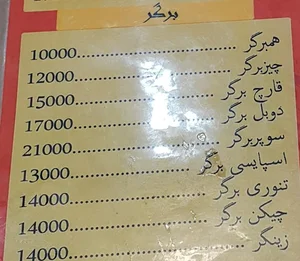 برگر
همبرگر ........................ 10000
چیزبرگر ........................ 12000
قارچ برگر ........................ 15000
دوبل برگر ........................ 17000
سوپربرگر ........................ 21000
اسپایسی برگر ........................ 13000
تنوری برگر ........................ 14000
چیکن برگر ........................ 14000
زینگر ........................ 14000